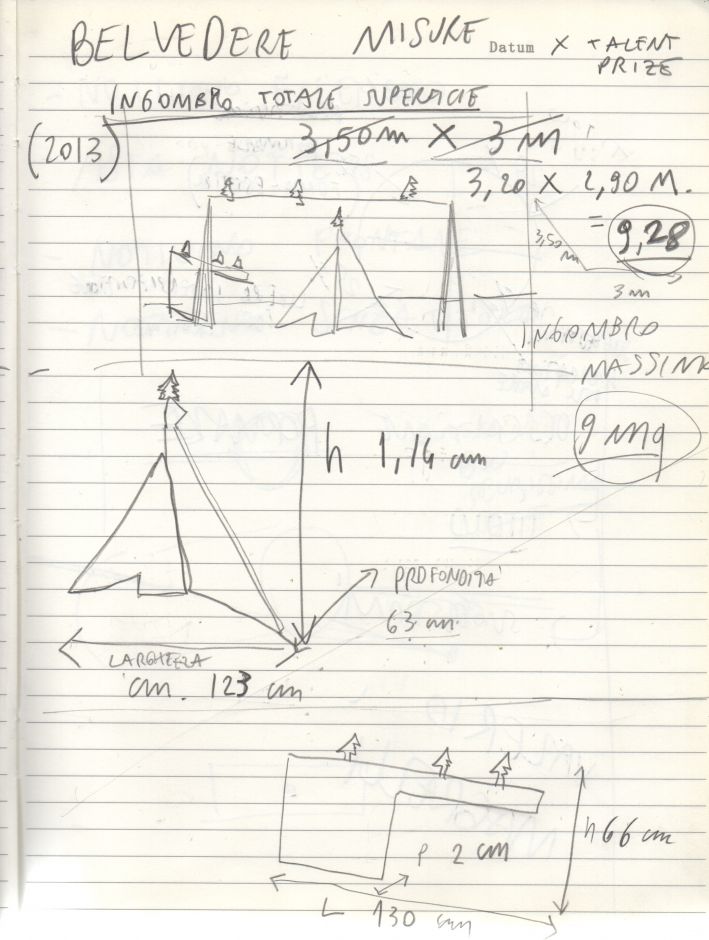 BELVEDERE MISURE Datum X TALENT
PRIZE
INGOMBRO TOTALE SUPERFICIE
(2013)
3,50 m X 3 m
3,20 X 2,90 M.
= 9,28
3,50 m
3 m
INGOMBRO
MASSIMO
9 mq
h 1,14 cm
PROFONDITA'
63 cm
LARGHEZZA
cm. 123 cm
h 66 cm
P 2 cm
L 130 cm